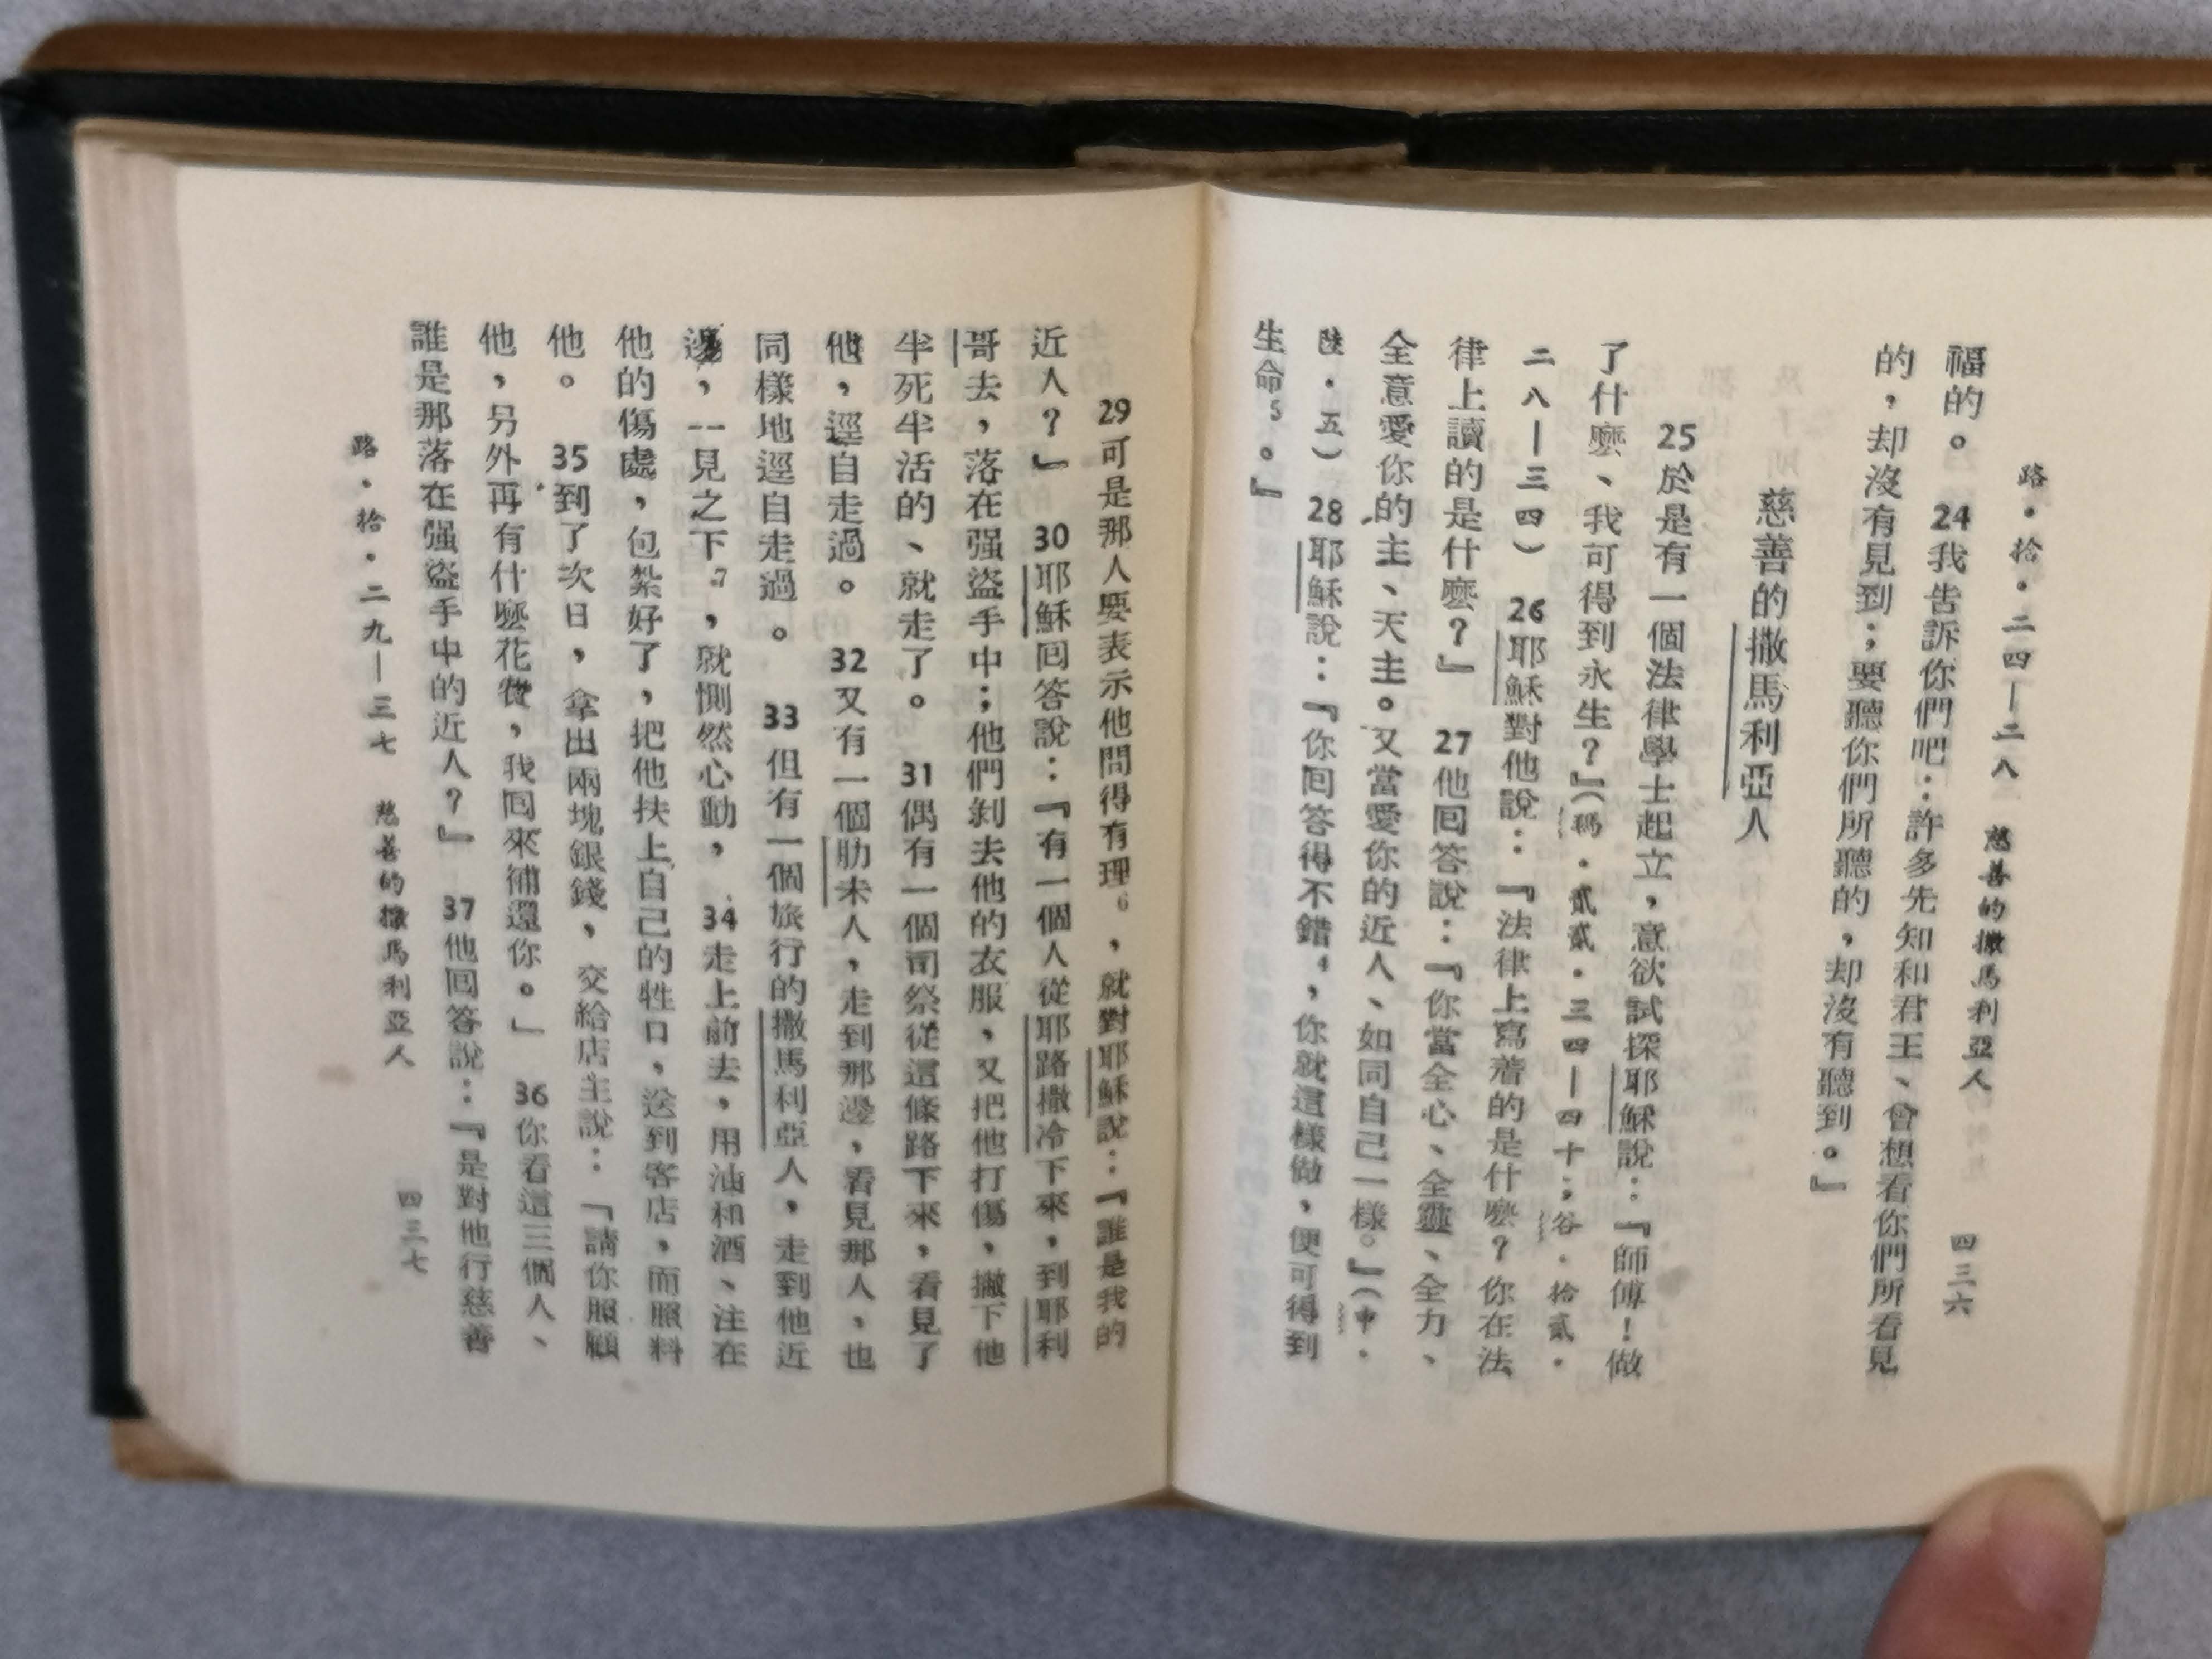 路・拾・二四—二八 慈善的撒馬利亞人 四三六
福的。 24我告訴你們吧：許多先知和君王、曾想看你們所看見
的，却沒有見到；要聽你們所聽的，却沒有聽到。』
慈善的撒馬利亞人
25於是有一個法律學士起立，意欲試探耶穌說：『師傅！做
了什麼、我可得到永生？』（瑪・貳貳・三四—四十；谷・拾貳・
二八—三四） 26耶穌對他說：『法律上寫着的是什麼？你在法
律上讀的是什麼？』 27他回答說：『你當全心、全靈、全力、
全意愛你的主、天主。又當愛你的近人、如同自己一樣。』（申・
陸・五） 28耶穌說：『你回答得不錯4，你就這樣做，便可得到
生命5。』
29可是那人要表示他問得有理6，就對耶穌說：『誰是我的
近人？』 30耶穌回答說：『有一個人從耶路撒冷下來，到耶利
哥去，落在强盜手中；他們剝去他的衣服、又把他打傷，撇下他
半死半活的、就走了。 31偶有一個司祭從這條路下來，看見了
他，逕自走過。 32又有一個肋未人，走到那邊，看見那人，也
同樣地逕自走過。 33但有一個旅行的撒馬利亞人，走到他近
邊，一見之下7，就惻然心動， 34走上前去，用油和酒、注在
他的傷處，包紮好了，把他扶上自己的牲口，送到客店，而照料
他。 35到了次日，拿出兩塊銀錢，交給店主說：「請你照顧
他，另外再有什麼花費，我回來補還你。」 36你看這三個人、
誰是那落在强盜手中的近人？』 37他回答說：『是對他行慈善
路・拾・二九—三七 慈善的撒馬利亞人 四三七